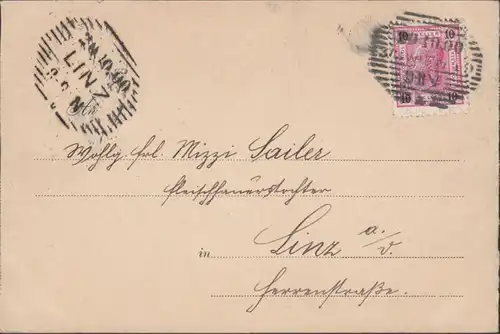 10 10
10.00
LINZ
10 10
Wohlg. frl. Mizzi Sailer
fleischhauerstochter
in Linz a./d.
Herrenstraße.